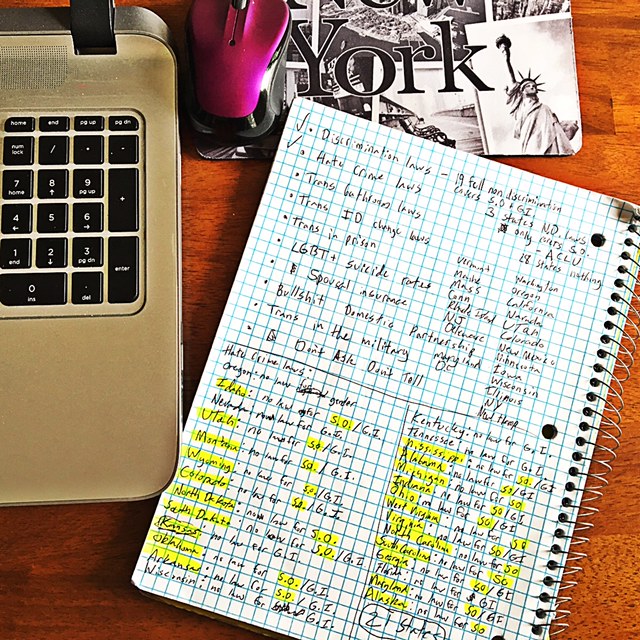 New
York
home end pg up pg dn
num lock / * -
7 home 8 9 pg up +
4 5 6
1 end 2 3 pg dn enter
0 ins . del
Discrimination laws - 19 full non discrimination
covers S.O & G.I.
Hate crime laws
3 states N.D. laws
only covers S.O
Trans bathroom laws
ACLU
28 states nothing
Trans ID change laws
Trans in prison
LGBT+ suicide rates
Spousal insurance
Bullshit Domestic Partnership
Trans in the military
Dont Ask Dont Tell
Vermont
Maine
Mass
Conn
Rhode Island
Delaware
Maryland
DC
Washington
Oregon
California
Nevada
UTAH
Colorado
New Mexico
Minnesota
Iowa
Wisconsin
Illinois
NY
Hate crime laws:
Oregon: no law gender
Idaho: no law for S.O./G.I.
Nevada: no law for G.I.
Utah: no law for S.O./G.I.
Montana: no law for S.O./G.I.
Wyoming: no law for SO/G.I.
Colorado: no law for G.I.
North Dakota: no law for S.O./G.I.
South Dakota: no law for S.O./G.I.
Kansas: no law for G.I.
Oklahoma: no law for S.O./G.I.
Arkansas: no law for S.O./G.I.
Wisconsin: no law for G.I.
Kentucky: no law for G.I.
Tennessee: no law for G.I.
Mississippi: no law for SO/G.I.
Alabama: no law for SO/G.I.
Michigan: no law for SO/G.I.
Indiana: no law for SO/GI
Ohio: no law for SO/GI
West Virginia: no law for SO/GI
Virginia: no law for SO/GI
North Carolina: no law for SO/GI
South Carolina: no law for SO/GI
Georgia: no law for SO/GI
Florida: no law for GI
Maryland: no law for
Alaska: no law for SO/GI